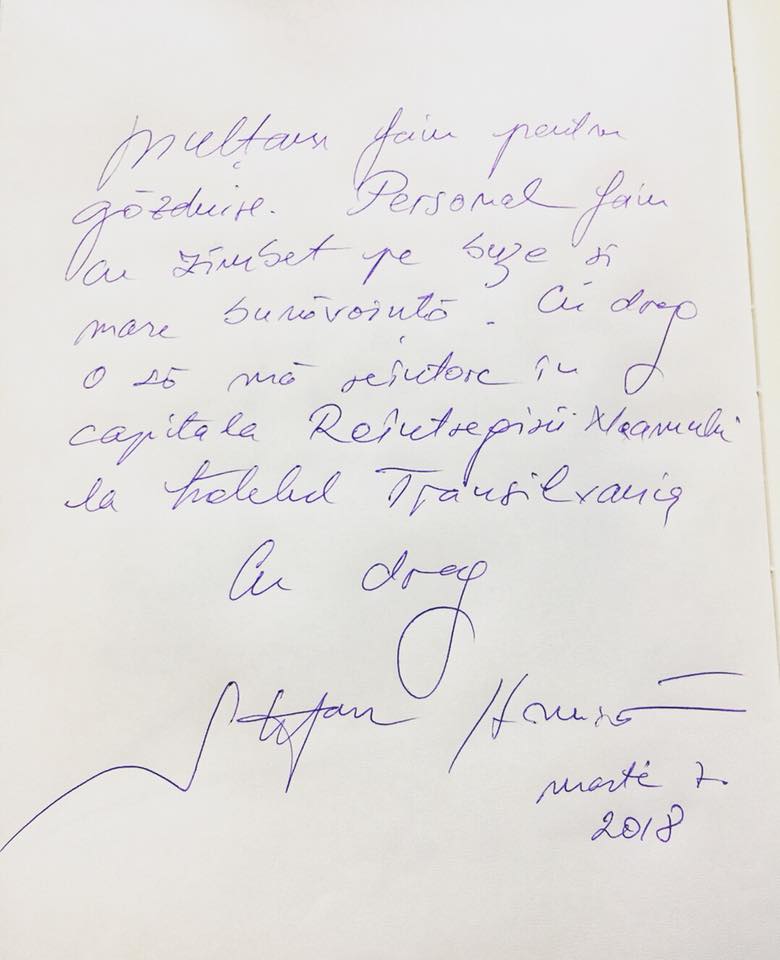 Mulțam fain pentru
găzduire. Personal fain
cu zîmbet pe buze si
mare bunăvoință. Cu drag
o să mă reîntorc în
capitala Reîntregirii Neamului
la hotelul Transilvania
Cu drag
Ștefan Hrușcă
martie 7.
2018